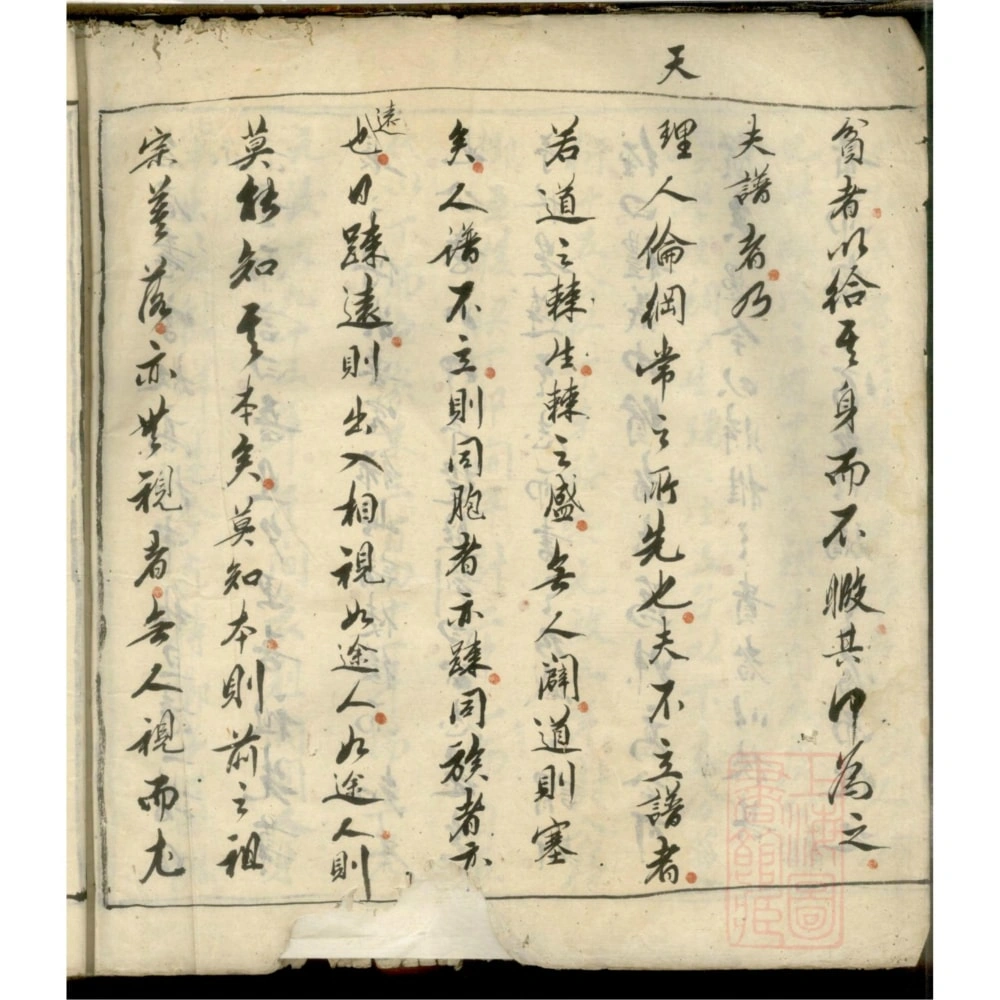 貧者以給其身而不暇其中為之
夫譜者乃
天
理人倫綱常之所先也夫不立譜者
若道之棘生棘之盛無人闢道則塞
矣人譜不立則同胞者亦踈同族者亦
遠
也日踈遠則出入相視如途人如途人則
莫能知其本矣莫知本則前之祖
宗塋落亦無視者無人視而尤
上海圖書館藏